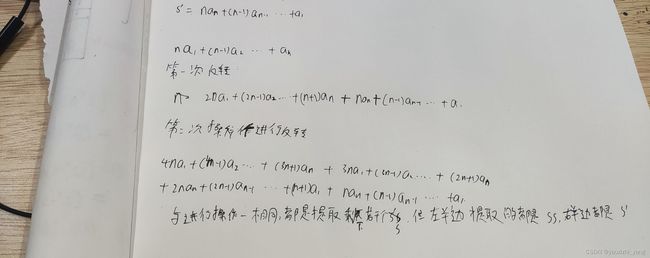 s' = nan+(n-1)an-1 ... +a1
na1+(n-1)a2 ... +an
第一次反转
2na1+(2n-1)a2 ... +(n+1)an + nan+(n-1)an-1 ... +a1
第二次操作 进行反转
4na1+(4n-1)a2 ... + (3n+1)an + 3na1+( n-1)a2 ... + (2n+1)an
+2nan+(2n-1)an-1 ... +(n+1)a1 + nan+(n-1)an-1 ... +a1
与 进行操作一相同,都是提取 若干 s, 但左半边提取的都是 ss, 右半边都是 s'
CSDN @youdale_yang